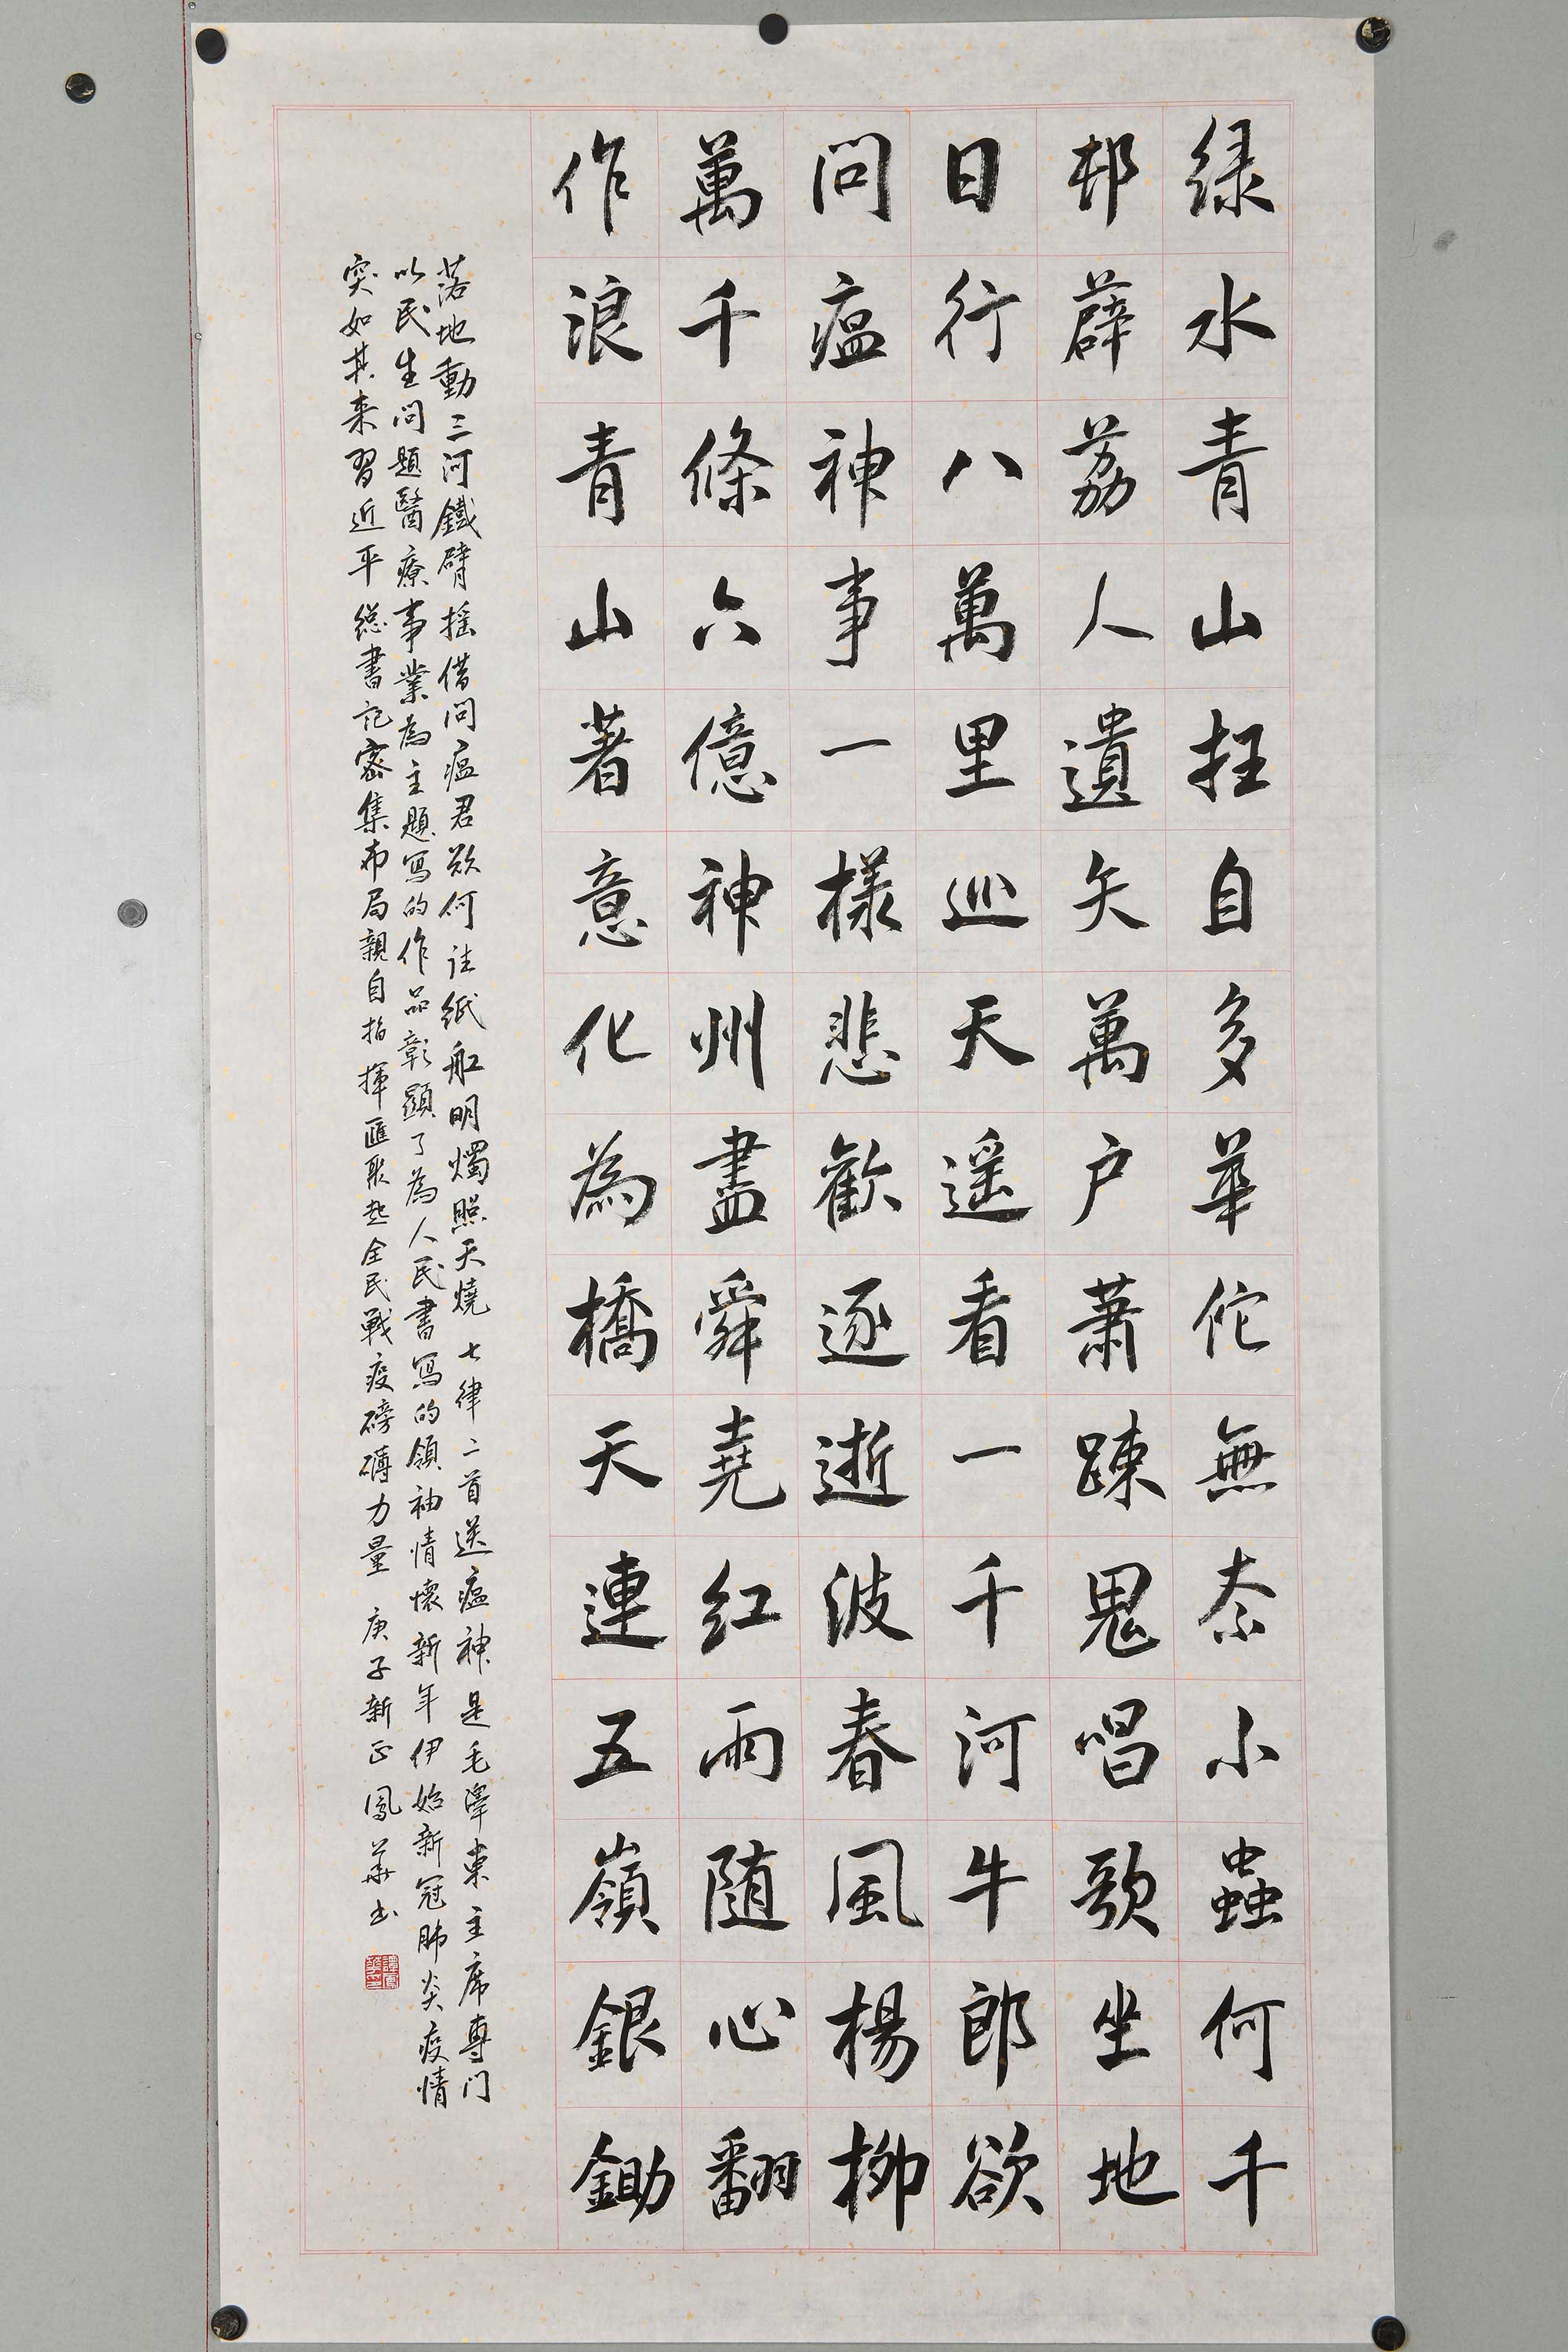 绿水青山抂自多華佗無奈小蟲何千
邨薜荔人遺矢萬户萧踈鬼唱歌坐地
日行八萬里巡天遥看一千河牛郎欲
問瘟神事一樣悲歡逐逝波春風楊柳
萬千條六億神州盡舜堯红雨随心翻
作浪青山著意化為橋天連五嶺銀鋤
落地動三河鐵臂摇借問瘟君欲何往纸船明燭照天燒 七律二首送瘟神是毛澤東主席專门
以民生问題醫療事業為主題寫的作品彰顯了為人民書寫的領袖情懷新年伊始新冠肺炎疫情
突如其来習近平總書记密集布局親自指揮匯聚起全民戰疫磅礴力量 庚子新正鳳華书
譚鳳華印